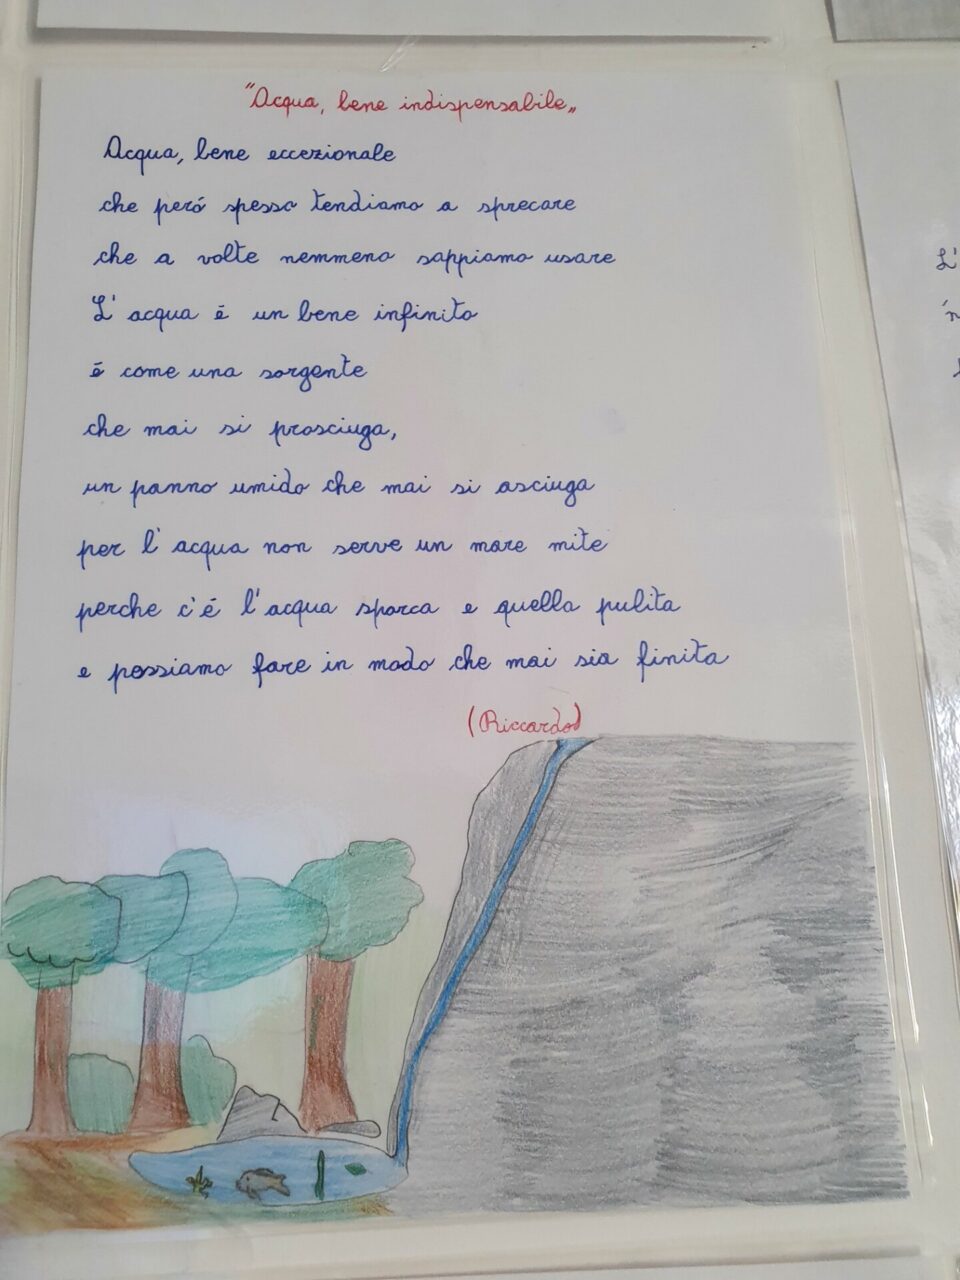 "Acqua, bene indispensabile„
Acqua, bene eccezionale
che peró spesso tendiamo a sprecare
che a volte nemmeno sappiamo usare
L' acqua é un bene infinito
é come una sorgente
che mai si prosciuga,
un panno umido che mai si asciuga
per l' acqua non serve un mare mite
perche c'é l'acqua sporca e quella pulita
e possiamo fare in modo che mai sia finita
(Riccardo)
L'